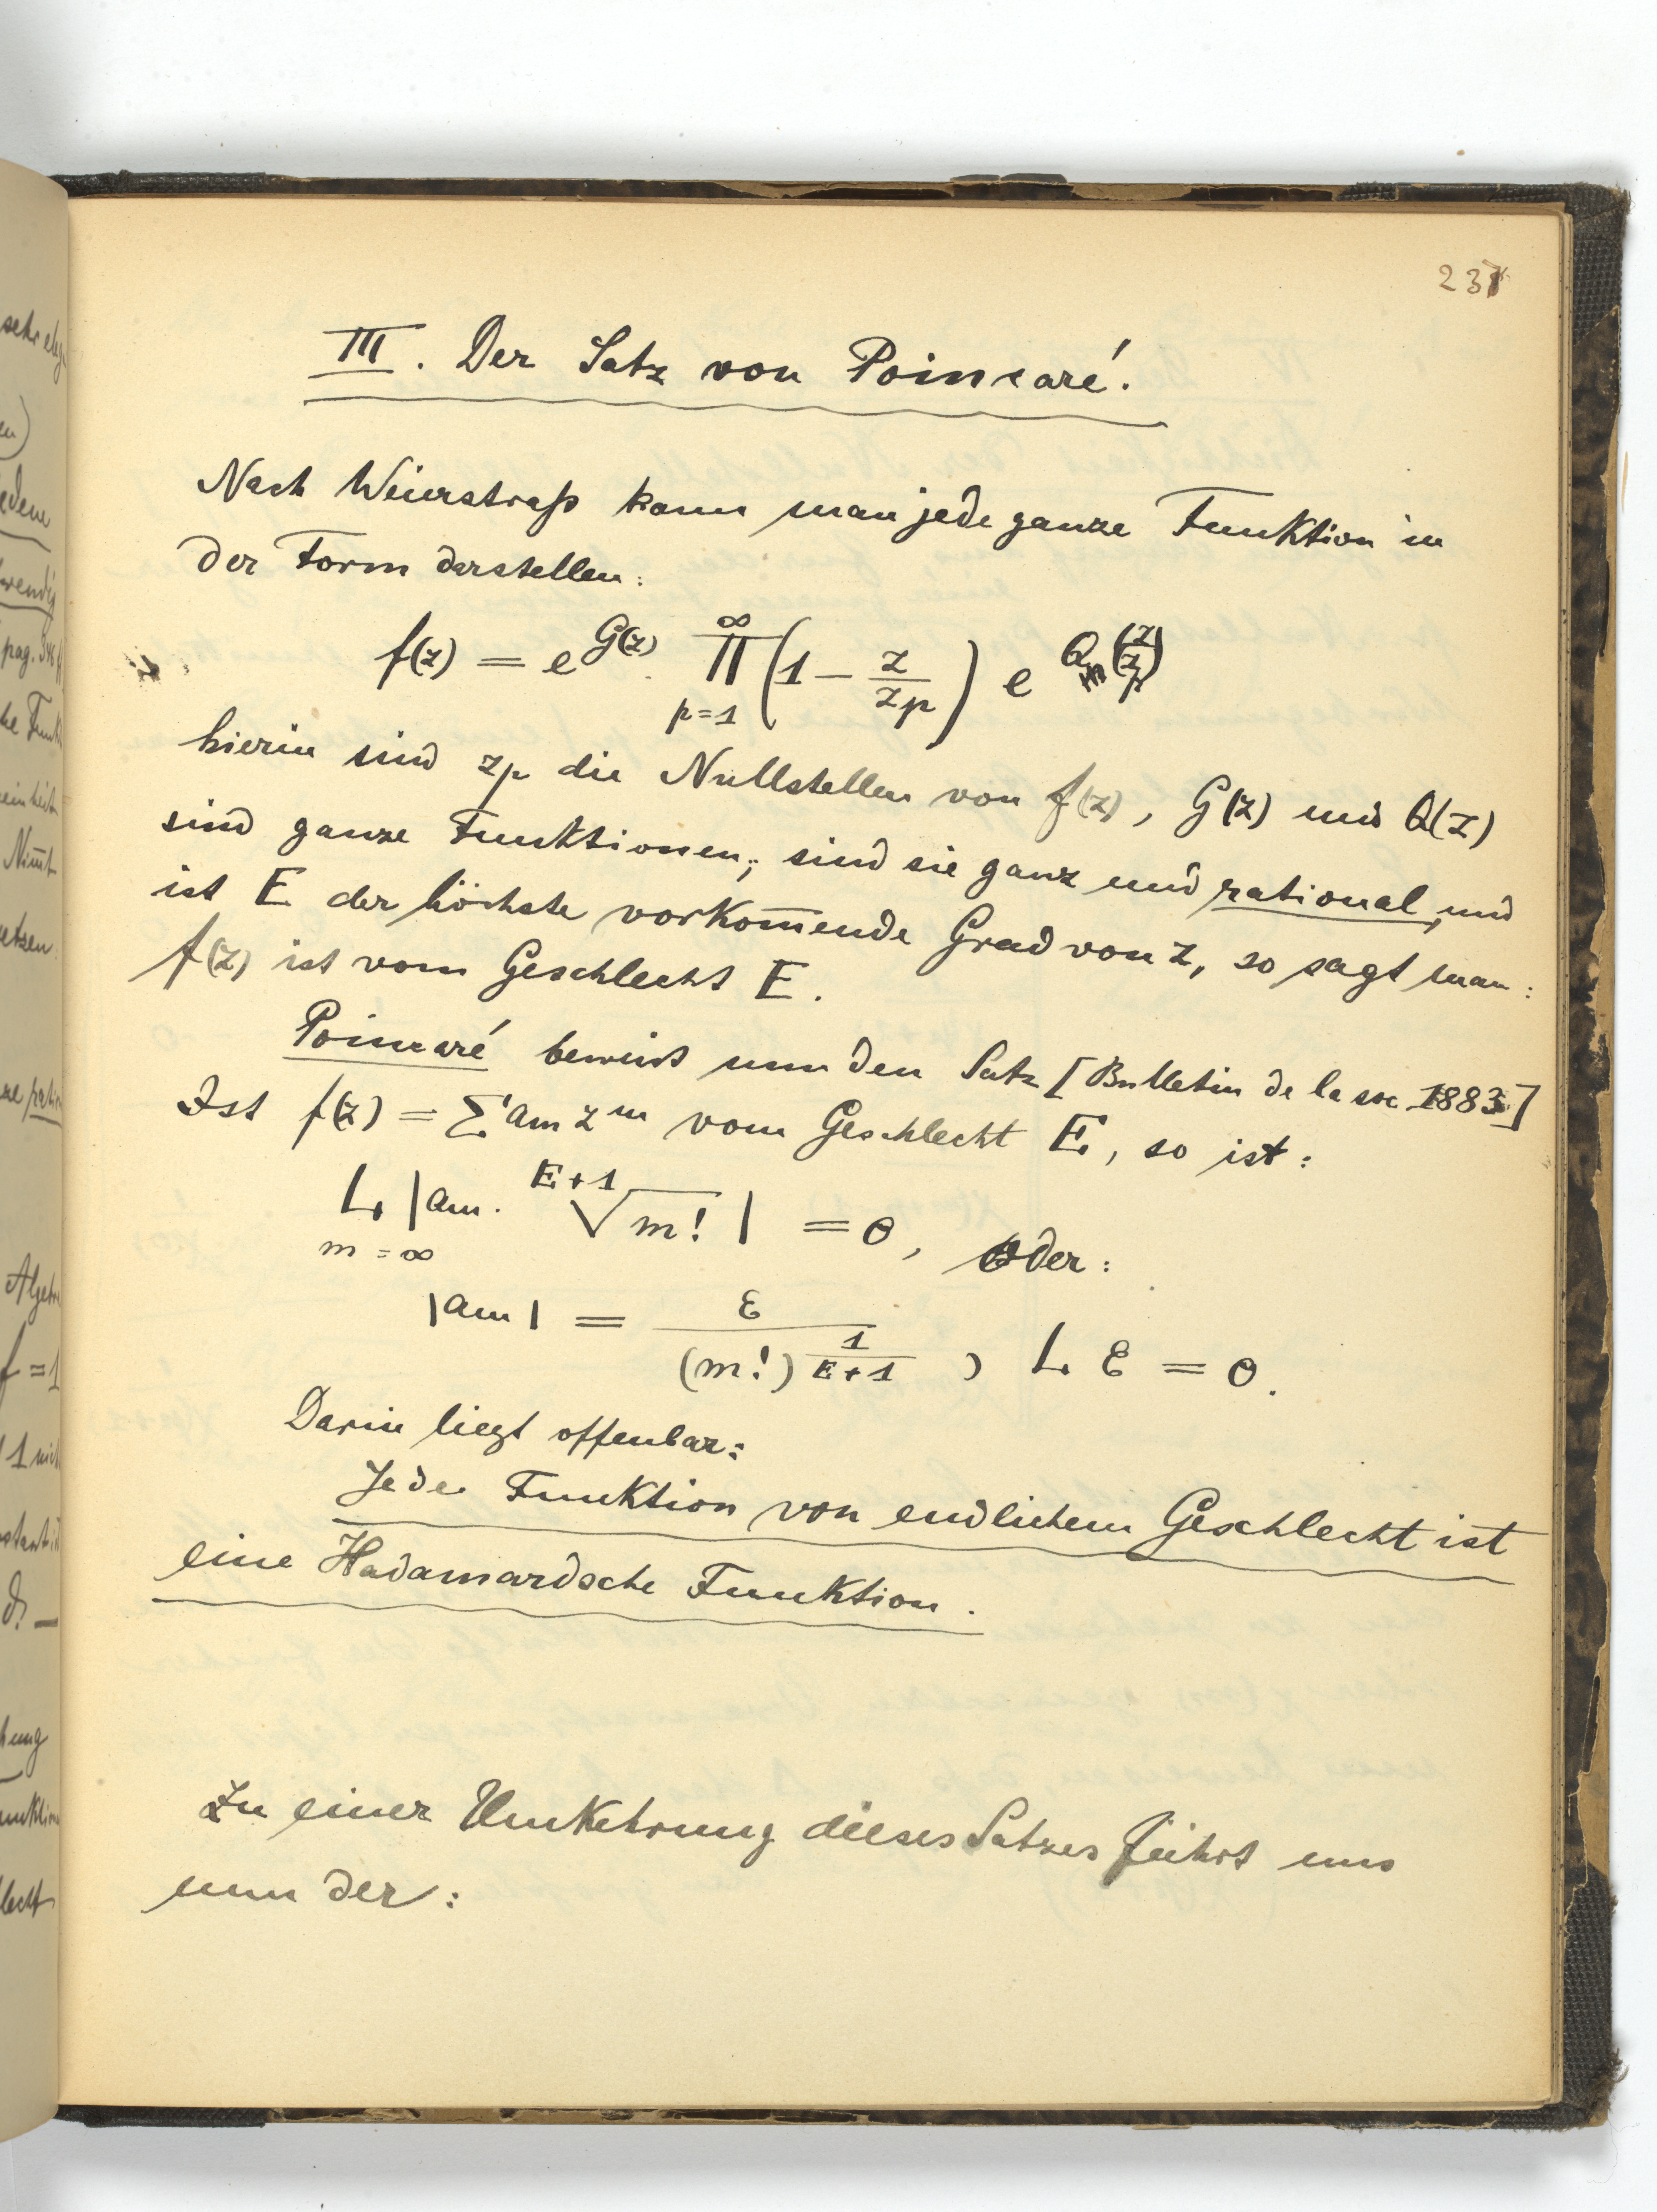 237
III. Der Satz von Poincaré.
Nach Weierstraß kann man jede ganze Funktion in
der Form darstellen:
f(z) = e^{G(z)} ∏_{p=1}^{∞} (1 - z/z_p) e^{Q(z/z_p)}
hierin sind z_p die Nullstellen von f(z), G(z) und Q(z)
sind ganze Funktionen; sind sie ganz und rational, und
ist E der höchste vorkom̄ende Grad von z, so sagt man:
f(z) ist vom Geschlecht E.
Poincaré beweist nun den Satz [Bulletin de la soc 1883]
Ist f(z) = Σ a_m z^m vom Geschlecht E, so ist:
L_{m=∞} |a_m · \sqrt[E+1]{m!}| = 0, oder:
|a_m| = ε / (m!)^{1/(E+1)} , L ε = 0.
Darin liegt offenbar:
Jede Funktion von endlichem Geschlecht ist
eine Hadamardsche Funktion.
Zu einer Umkehrung dieses Satzes führt uns
nun der: